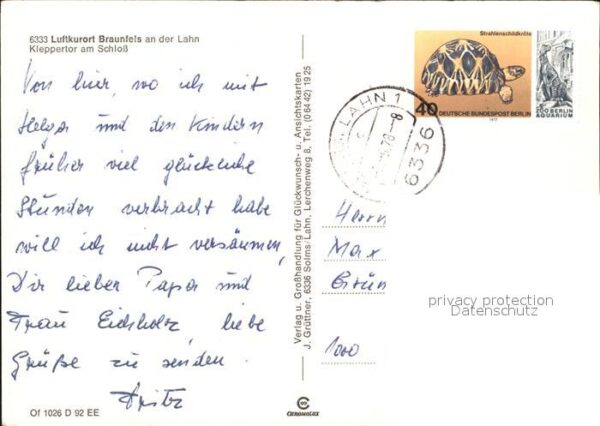 6333 Luftkurort Braunfels an der Lahn
Kleppertor am Schloß
Von hier, wo ich mit
Helga und den Kindern
früher viel glückliche
Stunden verbracht habe
will ich nicht versäumen,
Dir lieber Papa und
Frau Eichholz, liebe
Grüße zu senden.
Fritz
Of 1026 D 92 EE
Verlag u. Großhandlung für Glückwunsch- u. Ansichtskarten
J. Grüttner, 6336 Solms/Lahn, Lerchenweg 8, Tel. (0 64 42) 19 25
CHROMOLUX
Strahlenschildkröte
40
DEUTSCHE BUNDESPOST BERLIN
1977
ZOO BERLIN
AQUARIUM
LAHN 1
78-8
6336
Herrn
Max
Grün
1000
privacy protection
Datenschutz